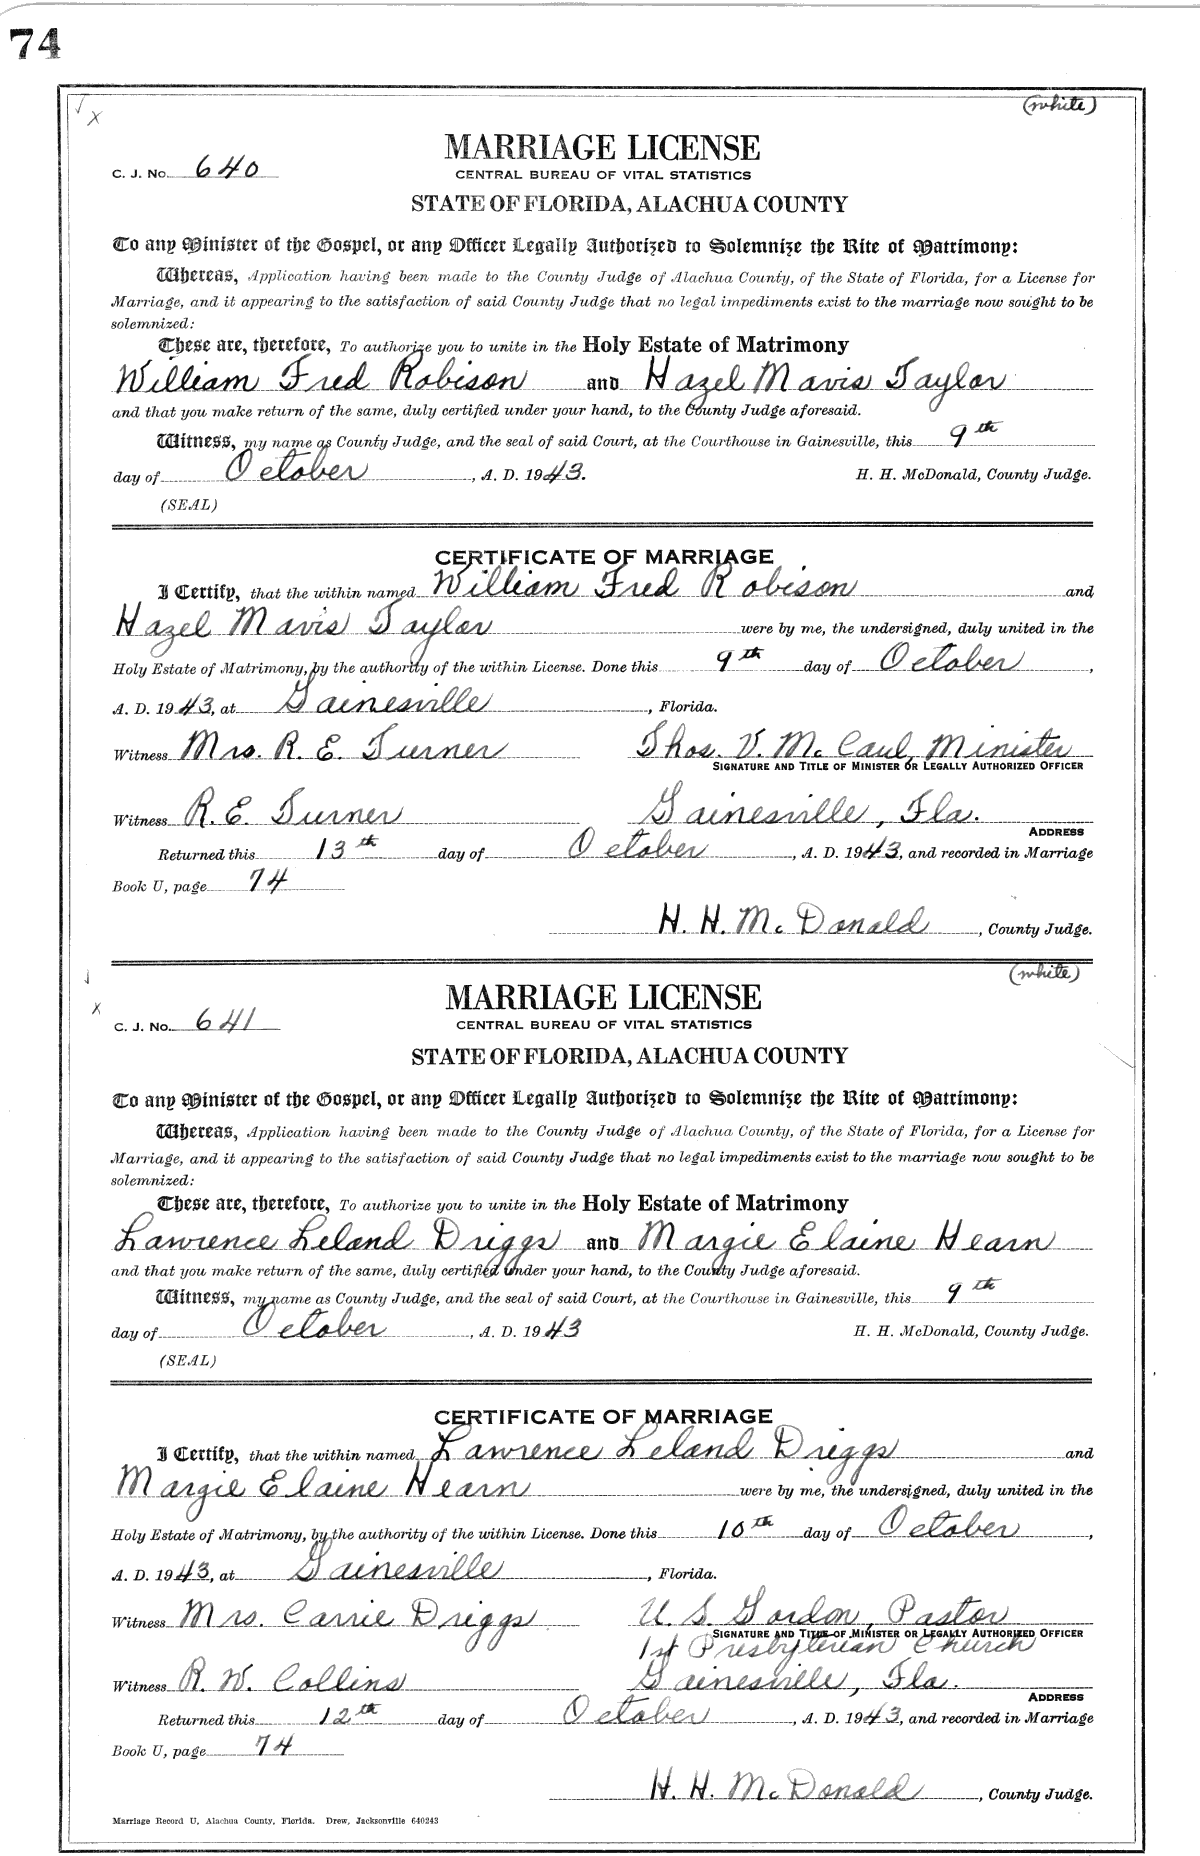 74
(white)
√
x
MARRIAGE LICENSE
C. J. No. 640
CENTRAL BUREAU OF VITAL STATISTICS
STATE OF FLORIDA, ALACHUA COUNTY
To any Minister of the Gospel, or any Officer Legally Authorized to Solemnize the Rite of Matrimony:
Whereas, Application having been made to the County Judge of Alachua County, of the State of Florida, for a License for
Marriage, and it appearing to the satisfaction of said County Judge that no legal impediments exist to the marriage now sought to be
solemnized:
These are, therefore, To authorize you to unite in the Holy Estate of Matrimony
William Fred Robison and Hazel Mavis Taylor
and that you make return of the same, duly certified under your hand, to the County Judge aforesaid.
Witness, my name as County Judge, and the seal of said Court, at the Courthouse in Gainesville, this 9th
day of October, A. D. 1943. H. H. McDonald, County Judge.
(SEAL)
CERTIFICATE OF MARRIAGE
I Certify, that the within named William Fred Robison and
Hazel Mavis Taylor were by me, the undersigned, duly united in the
Holy Estate of Matrimony, by the authority of the within License. Done this 9th day of October,
A. D. 1943, at Gainesville, Florida.
Witness Mrs. R. E. Turner Thos. V. McCaul, Minister
SIGNATURE AND TITLE OF MINISTER OR LEGALLY AUTHORIZED OFFICER
Witness R. E. Turner Gainesville, Fla.
ADDRESS
Returned this 13th day of October, A. D. 1943, and recorded in Marriage
Book U, page 74
H. H. McDonald, County Judge.
(white)
√
x
MARRIAGE LICENSE
C. J. No. 641
CENTRAL BUREAU OF VITAL STATISTICS
STATE OF FLORIDA, ALACHUA COUNTY
To any Minister of the Gospel, or any Officer Legally Authorized to Solemnize the Rite of Matrimony:
Whereas, Application having been made to the County Judge of Alachua County, of the State of Florida, for a License for
Marriage, and it appearing to the satisfaction of said County Judge that no legal impediments exist to the marriage now sought to be
solemnized:
These are, therefore, To authorize you to unite in the Holy Estate of Matrimony
Lawrence Leland Driggs and Margie Elaine Hearn
and that you make return of the same, duly certified under your hand, to the County Judge aforesaid.
Witness, my name as County Judge, and the seal of said Court, at the Courthouse in Gainesville, this 9th
day of October, A. D. 1943 H. H. McDonald, County Judge.
(SEAL)
CERTIFICATE OF MARRIAGE
I Certify, that the within named Lawrence Leland Driggs and
Margie Elaine Hearn were by me, the undersigned, duly united in the
Holy Estate of Matrimony, by the authority of the within License. Done this 10th day of October,
A. D. 1943, at Gainesville, Florida.
Witness Mrs. Carrie Driggs U. S. Gordon, Pastor
SIGNATURE AND TITLE OF MINISTER OR LEGALLY AUTHORIZED OFFICER
1st Presbyterian Church
Witness R. W. Collins Gainesville, Fla.
ADDRESS
Returned this 12th day of October, A. D. 1943, and recorded in Marriage
Book U, page 74
H. H. McDonald, County Judge.
Marriage Record U, Alachua County, Florida. Drew, Jacksonville 640243